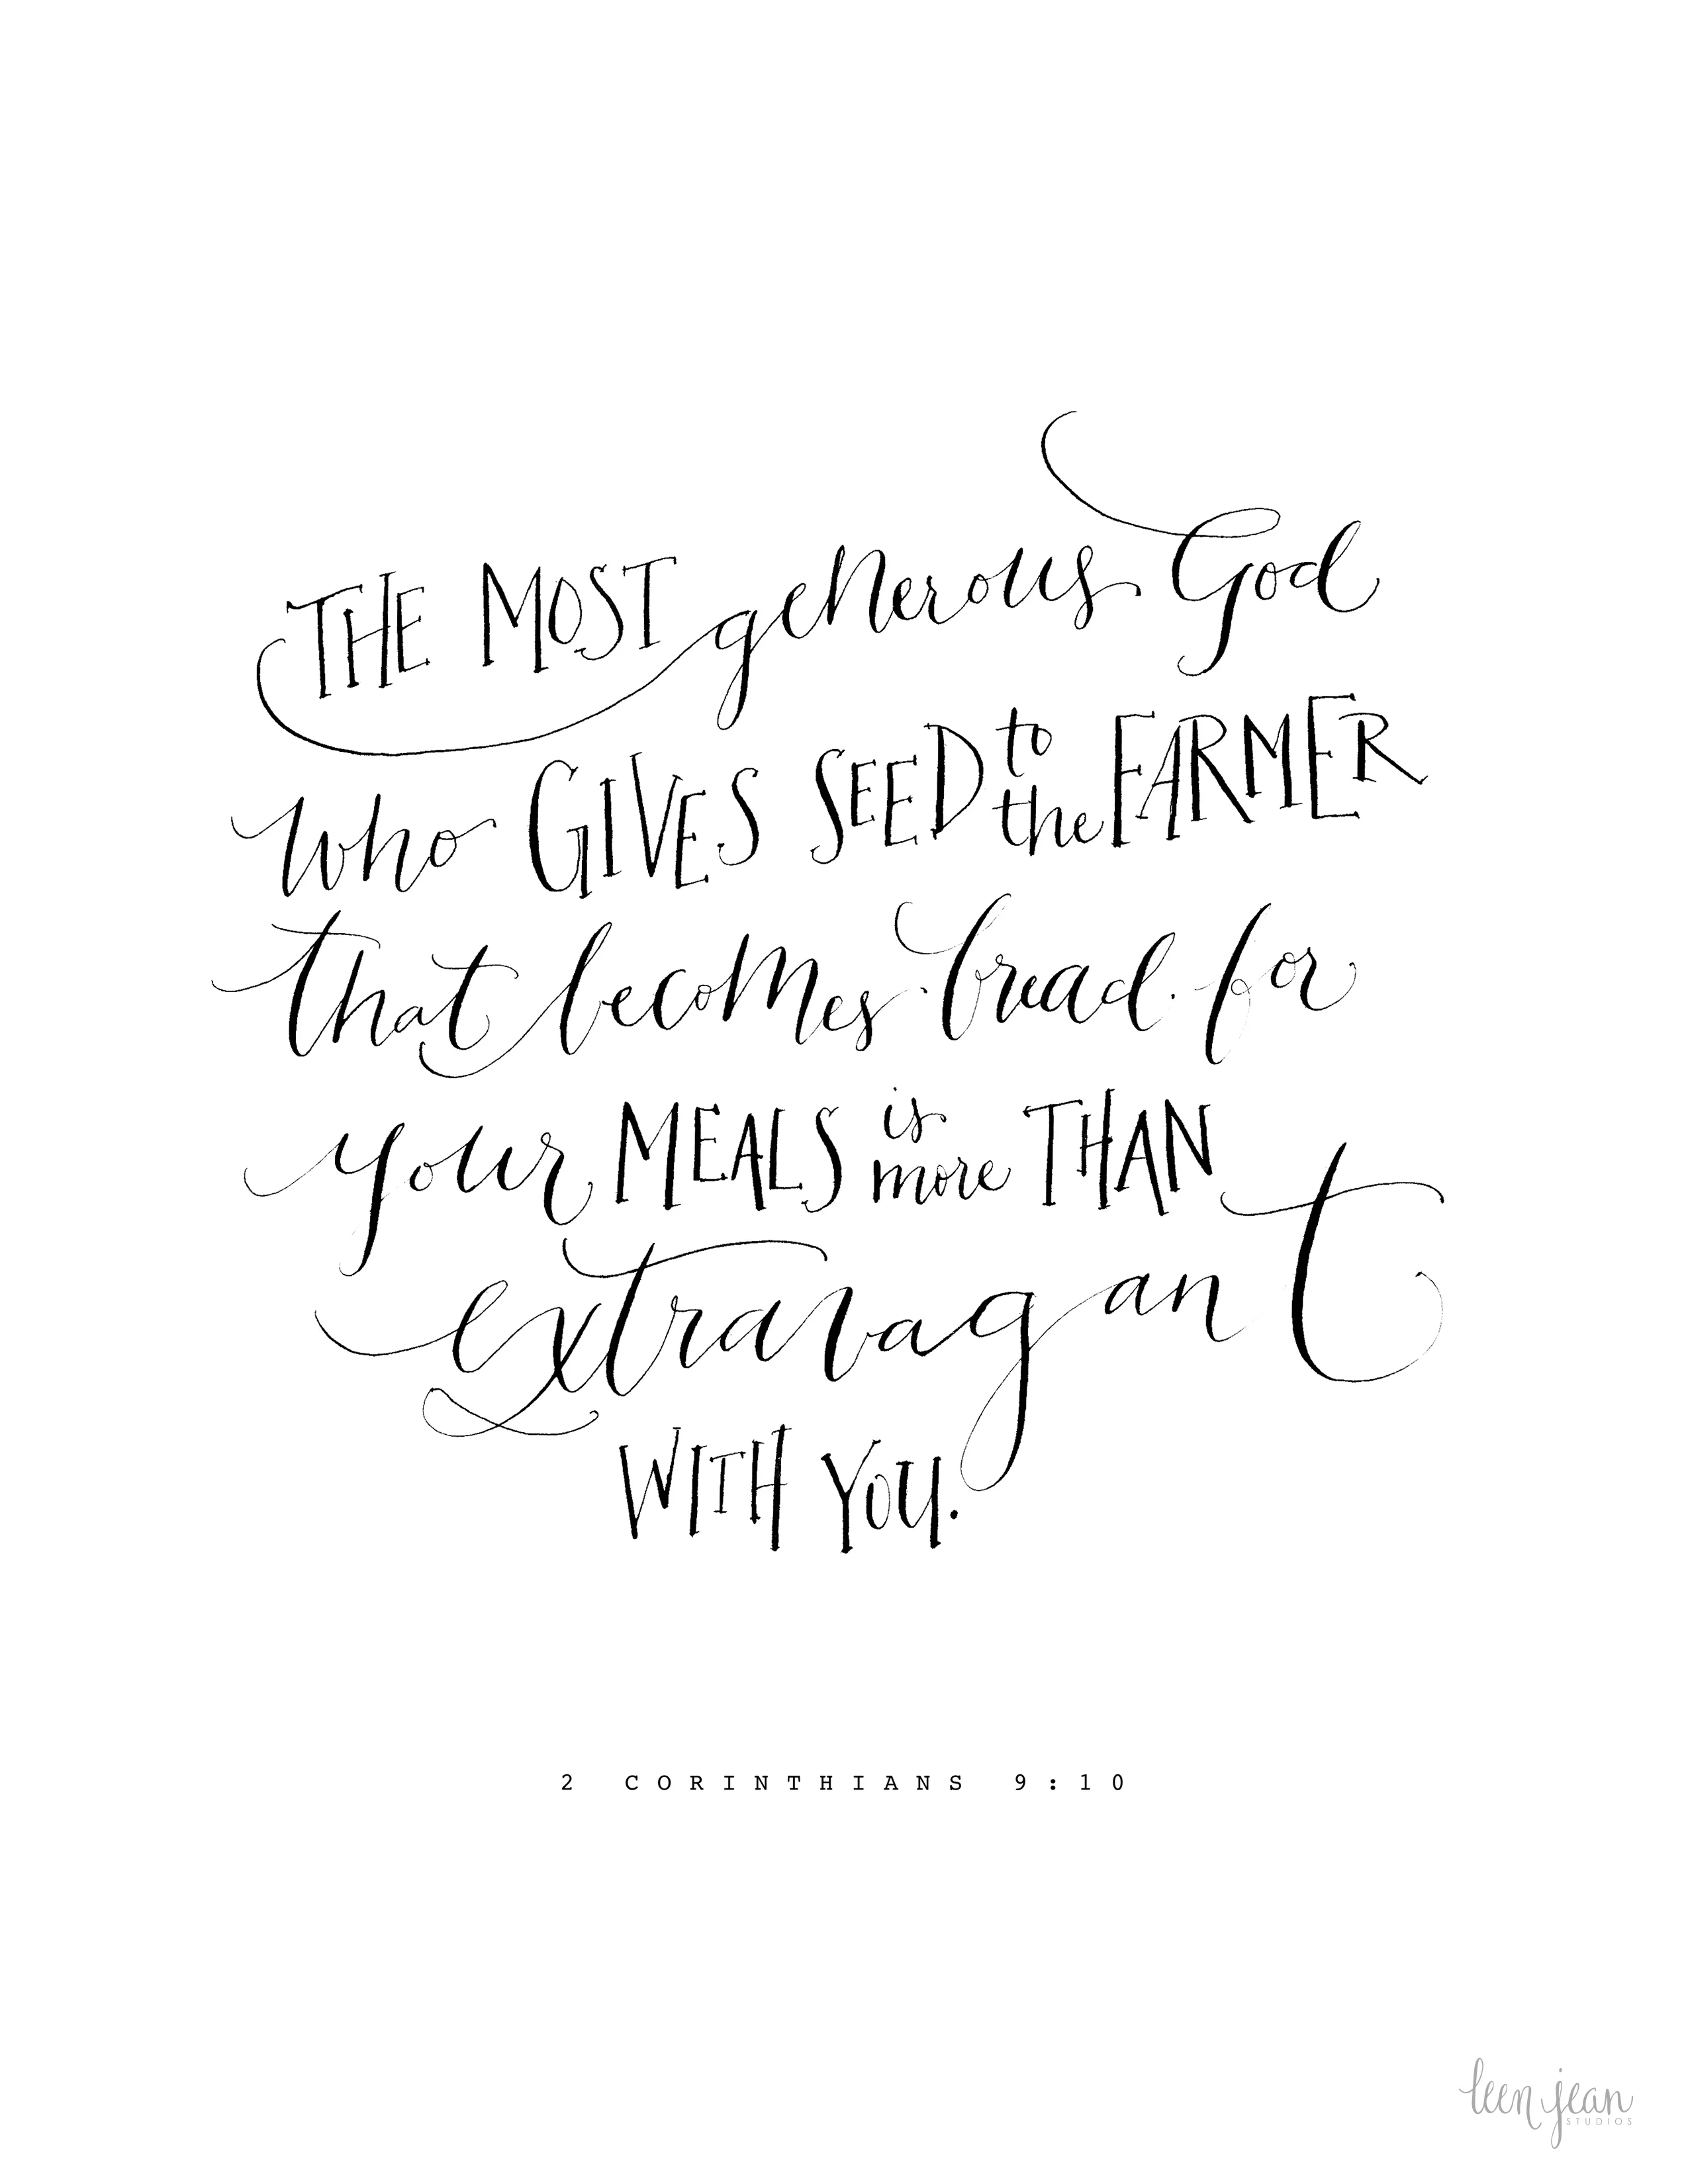 THE MOST generous God
who GIVES SEED to the FARMER
that becomes bread for
your MEALS is more THAN
extravagant
WITH YOU.
2 CORINTHIANS 9:10
leen jean
STUDIOS